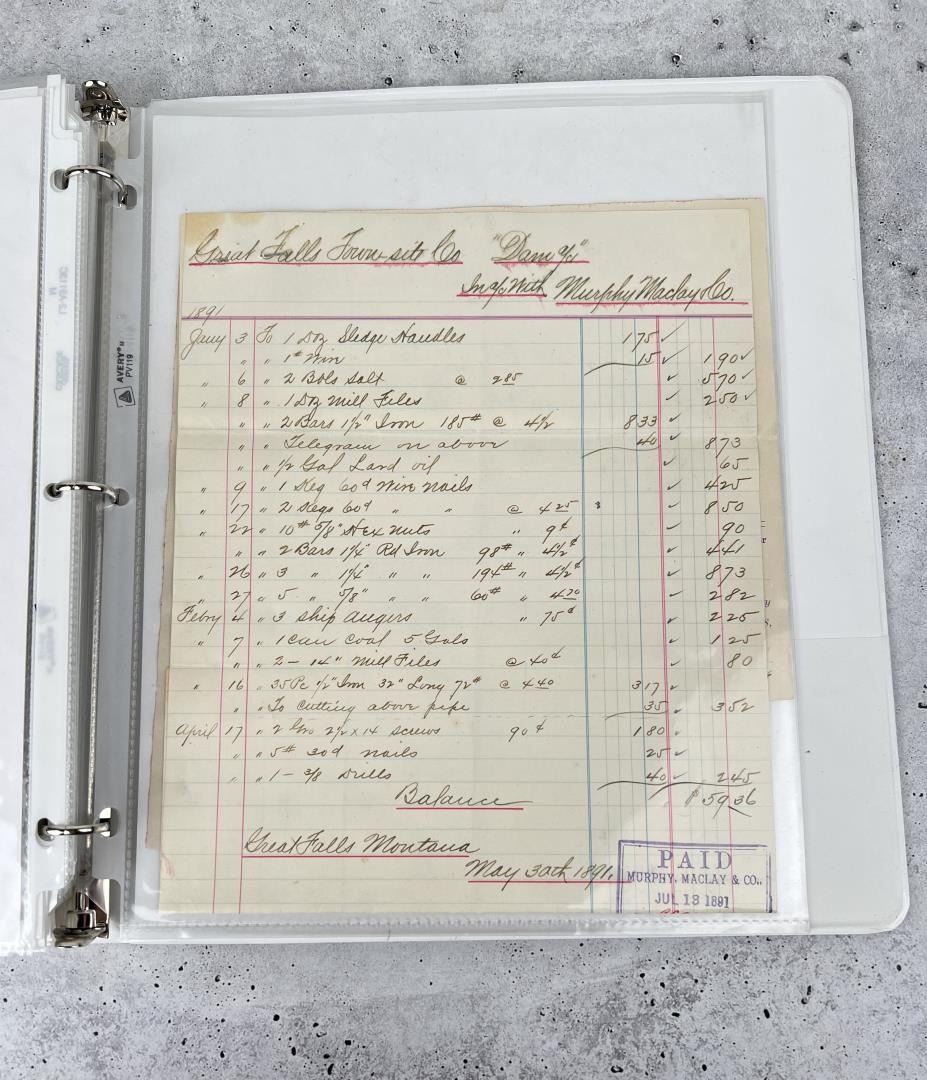 Great Falls Town-site Co "Dam a/c"
In a/c With Murphy Maclay & Co.
1891
Jany 3 To 1 Doz Sledge Handles 175 ✓
" " 1# Wire 15 ✓ 190 ✓
" 6 " 2 Bbls Salt @ 2 85 ✓ 570 ✓
" 8 " 1 Doz Mill Files ✓ 250 ✓
" " 2 Bars 1 1/2" Iron 185# @ 4 1/2 833 ✓
" " Telegram on above 40 ✓ 873
" " 1/2 Gal Lard oil ✓ 65
" 9 " 1 Keg 60d Wire nails ✓ 425
" 17 " 2 Kegs 60d " " @ 4 25 ✓ 850
" 22 " 10# 5/8" Hex Nuts " 9¢ ✓ 90
" " 2 Bars 1 1/4" Rd Iron 98# " 4 1/2¢ ✓ 441
" 26 " 3 " 1 1/4" " " 194# " 4 1/2¢ ✓ 873
" 27 " 5 " 5/8" " " 60# " 4 70 ✓ 282
Febry 4 " 3 Ship Augers " 75¢ ✓ 225
" 7 " 1 Can Coal 5 Gals ✓ 125
" " 2 - 14" Mill Files @ 40¢ ✓ 80
" 16 " 35 Pc 1/2" Iron 32" Long 72# @ 4 40 317 ✓
" " To Cutting above pipe 35 ✓ 352
April 17 " 2 Gro 2 1/2 x 14 Screws 90¢ 180 ✓
" " 5# 30d nails 25 ✓
" " 1 - 3/8 Drills 40 ✓ 245
Balance $59 36
Great Falls Montana
May 30th 1891.
PAID
MURPHY, MACLAY & CO.,
JUL 13 1891
AVERY®
PV119